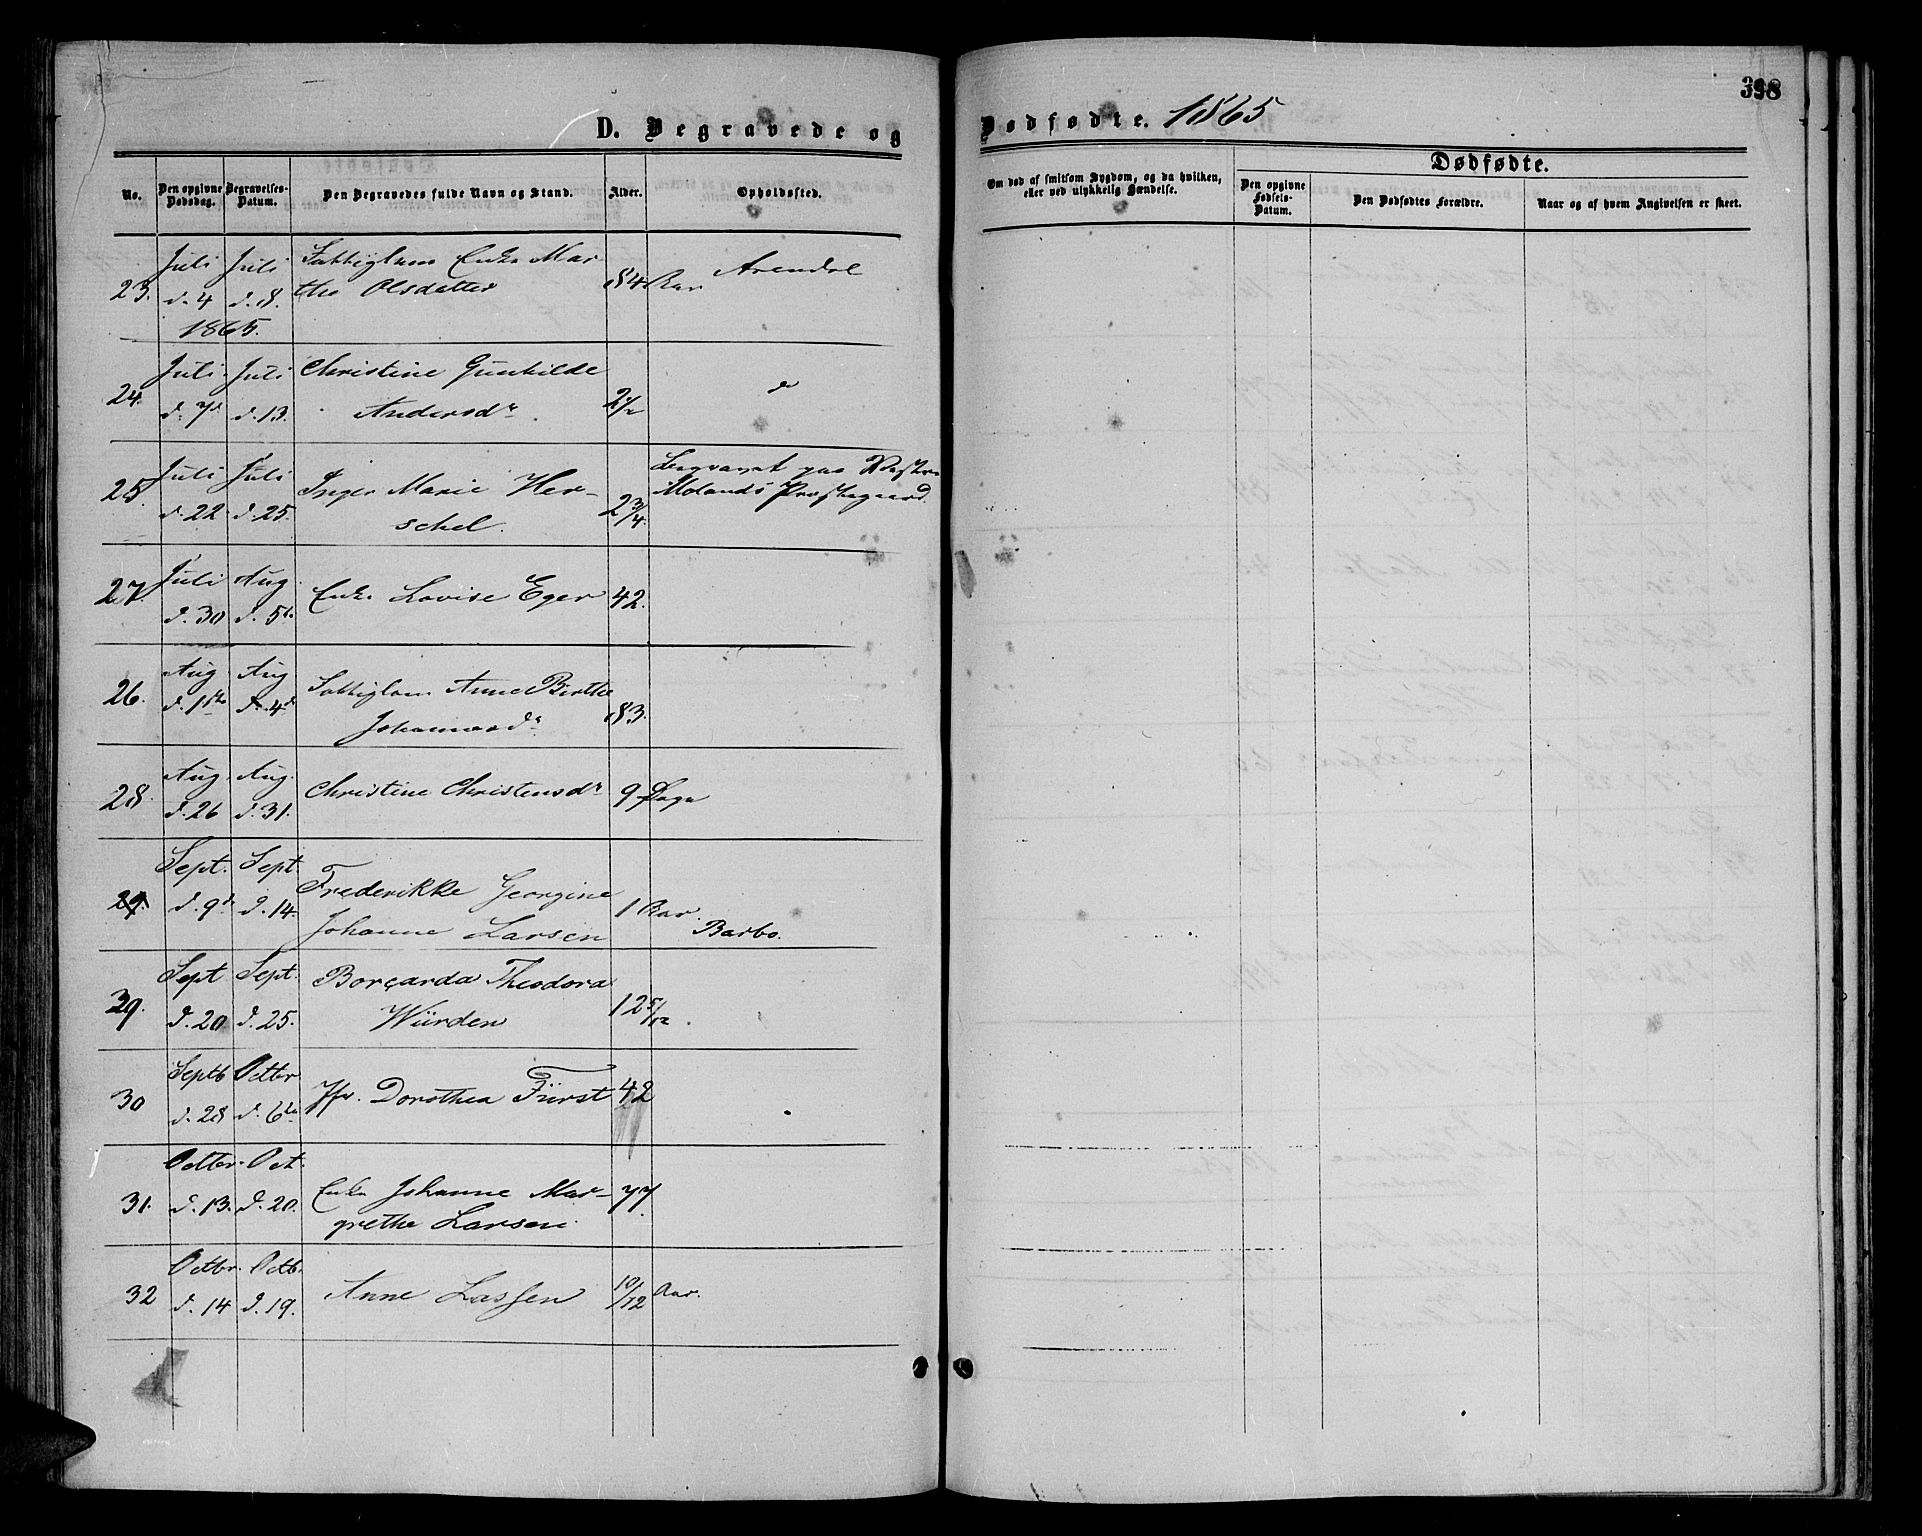 D. Begravede og
No.
Den opgivne Dødsdag.
Begravelses-Datum.
Den Begravedes fulde Navn og Stand.
Alder.
Opholdssted.
23. Juli d. 4 1865. Juli d. 8. Fattiglem Enke Mar
the Olsdatter 84 Aar Arendal
24. Juli d. 7d Juli d. 13. Christine Gunhilde
Andersdr. 2 1/2 do
25. Juli d. 22 Juli d. 25. Inger Marie Her-
schel. 2 3/4. Begravet paa Vestre
Molands Præstegaard.
27. Juli d. 30 Aug d. 5te Enke Lovise Eger 42.
26. Aug d. 1ste Aug d. 4d Fattiglem Anne Birthe
Johannesdr. 83.
28. Aug. d. 26 Aug. d. 31. Christine Christensdr 9 Dage
29. Sept. d. 9d Sept. d. 14. Frederikke Georgine
Johanne Larsen 1 Aar. Barbo.
29. Sept d. 20 Sept. d. 25. Borgarda Theodora
Würden 12 5/12.
30 Septb d. 28 Octbr. d. 6te Jfr. Dorothea Fürst 42
31. Octbr. d. 13. Oct. d. 20. Enke Johanne Mar-
grethe Larsen. 77.
32 Octbr. d. 14 Octb. d. 19. Anne Lassen 10/12 Aar.
Dødfødte. 1865
398
Om død af smitsom Sygdom, og da hvilken,
eller ved ulykkelig Hændelse.
Dødfødte.
Den opgivne Fødsels-Datum.
Den Dødfødtes Forældre.
Naar og af hvem Angivelsen er skeet.